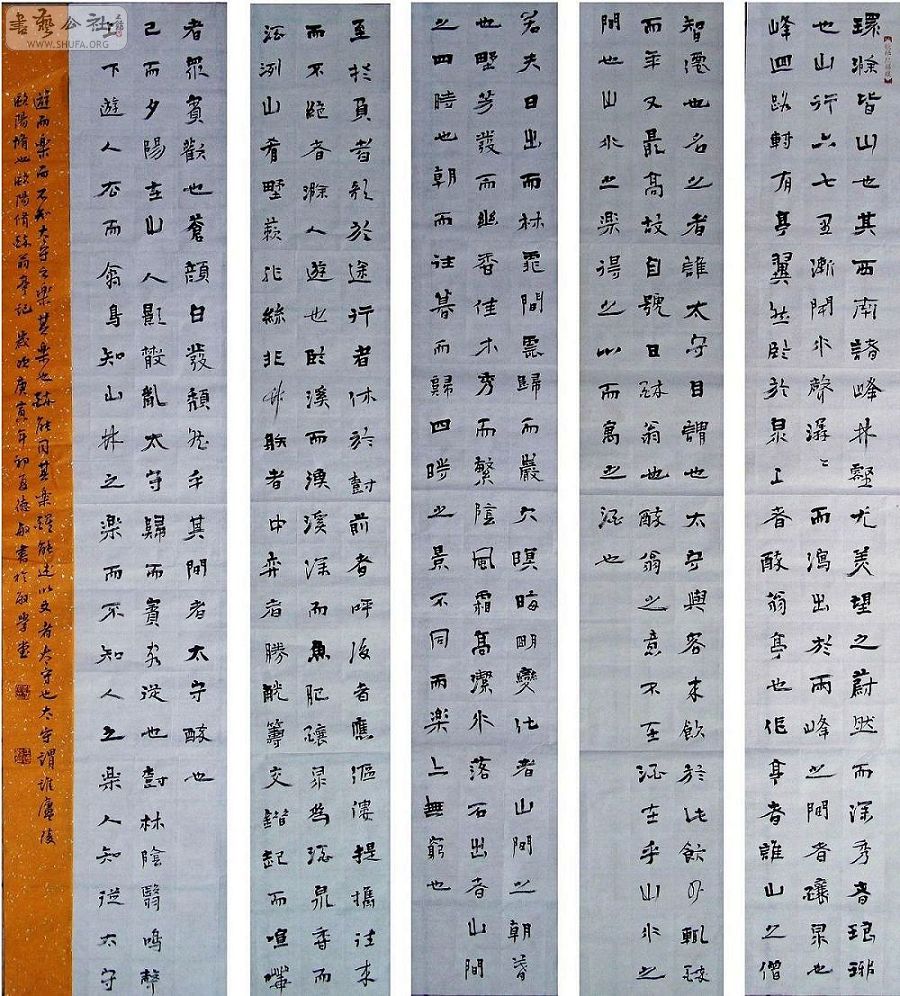 書藝公社
WWW.SHUFA.ORG
環滁皆山也其西南諸峰林壑尤美望之蔚然而深秀者琅琊
也山行六七里漸聞水聲潺〻而瀉出於兩峰之間者釀泉也
峰回路轉有亭翼然臨於泉上者醉翁亭也作亭者誰山之僧
智僊也名之者誰太守自謂也太守與客來飲於此飲少輒醉
而年又最高故自號曰醉翁也醉翁之意不在酒在乎山水之
間也山水之樂得之心而寓之酒也
若夫日出而林霏開雲歸而巖穴暝晦明變化者山間之朝暮
也野芳發而幽香佳木秀而繁陰風霜高潔水落石出者山間
之四時也朝而往暮而歸四時之景不同而樂亦無窮也
至於負者歌於途行者休於樹前者呼後者應傴僂提攜往來
而不絕者滁人遊也臨溪而漁溪深而魚肥釀泉為酒泉香而
酒洌山肴野蔌非絲非竹射者中弈者勝觥籌交錯起而喧嘩
者眾賓歡也蒼顏白發頹然乎其間者太守醉也
已而夕陽在山人影散亂太守歸而賓客從也樹林陰翳鳴聲
上下遊人去而禽鳥知山林之樂而不知人之樂人知從太守
遊而樂而不知太守之樂其樂也醉能同其樂醒能述以文者太守也太守謂誰廬陵
歐陽脩也歐陽脩醉翁亭記 歲次庚寅年初夏德敏書於敏學堂